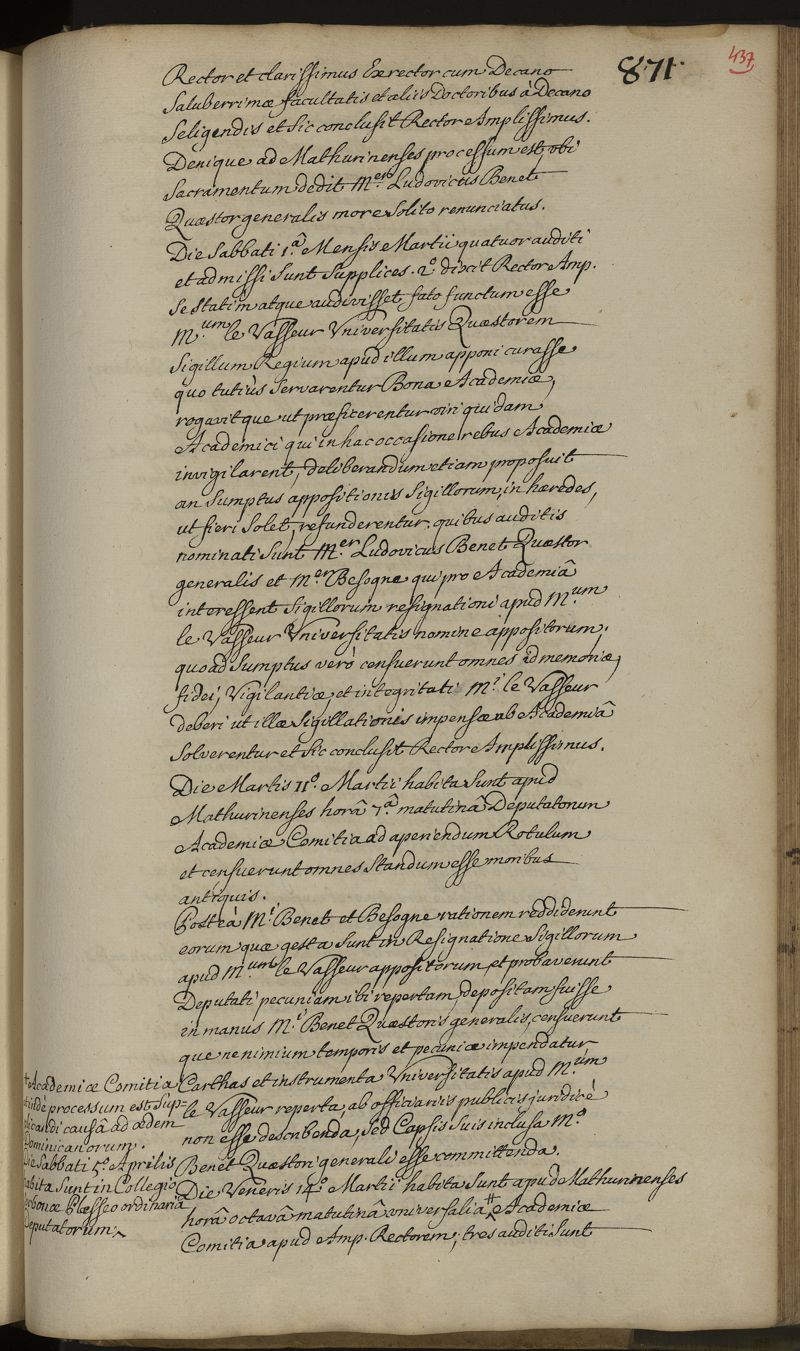 871.
437
Rector et clarissimus Exrector cum Decano
Saluberrimæ facultatis et aliis Doctoribus à Decano
Seligendis et Sic conclusit Rector Amplissimus.
Denique ad Mathurinenses processum est, ubi
Sacramentum dedit M.er Ludovicus Benet
Quæstor generalis more Solito renunciatus.
Die Sabbati 1.â Mensis Martii quatuor auditi
et admissi Sunt Supplices. 2.º dixit Rector Amp.
Se Statim atque audivisset fato functum esse
M.um le Vasseur Vniversitatis Quæstorem
Sigillum Regium apud illum apponi curasse
quo tutiùs Servarentur Bona Academiæ,
rogavitque ut præficerentur viri quidam
Academici qui in hac occasione rebus Academiæ
invigilarent, deliberandum etiam proposuit
an Sumptus appositionis Sigillorum, in hæredes,
ut fieri Solet, refunderentur. quibus auditis
nominati Sunt M.er Ludovicus Benet Quæstor
generalis et M.er Besogne qui pro Academiâ
interessent Sigillorum resignationi apud M.um
le Vasseur Vniversitatis nomine appositorum.
quoad Sumptus verò censuerunt omnes id memoriæ,
fidei, Vigilantiæ, et integritati M.i le Vasseur
deberi ut illæ Sigillationis impensæ ab Academiâ
Solverentur et Sic conclusit Rector Amplissimus.
Die Martis 11.º Martii habita Sunt apud
Mathurinenses horâ 7.â matutinâ Deputatorum
Academiæ Comitia ad aperiendum Rotulum
et censuerunt omnes Standum esse moribus
antiquis.
Posteà M.i Benet et Besogne rationem reddiderunt
eorum quæ gesta Sunt in Resignatione Sigillorum
apud M.um le Vasseur appositorum, et probaverunt
Deputati pecuniam ibi repertam, depositam fuisse
in manus M.i Benet Quæstoris generalis, censuerunt
que ne nimium temporis et pecuniæ impendatur
Carthas et instrumenta Vniversitatis apud M.um
le Vasseur reperta, ab officiariis publicis juridicè
non esse describenda, Sed Capsis Suis inclusa M.o
Benet Quæstori generali esse committenda.
Die Veneris 14.º Martii habita Sunt apud Mathurinenses
horâ octavâ matutinâ universalia # Academiæ
Comitia apud Amp. Rectorem; tres auditi Sunt
+ Academiæ Comitia
indè processum est Sup=
plicandi causâ ad ædem
Dominicanorum.
Die Sabbati 5.º Aprilis
habita Sunt in Collegio
Sorbonæ Plessæo ordinaria
Deputatorum